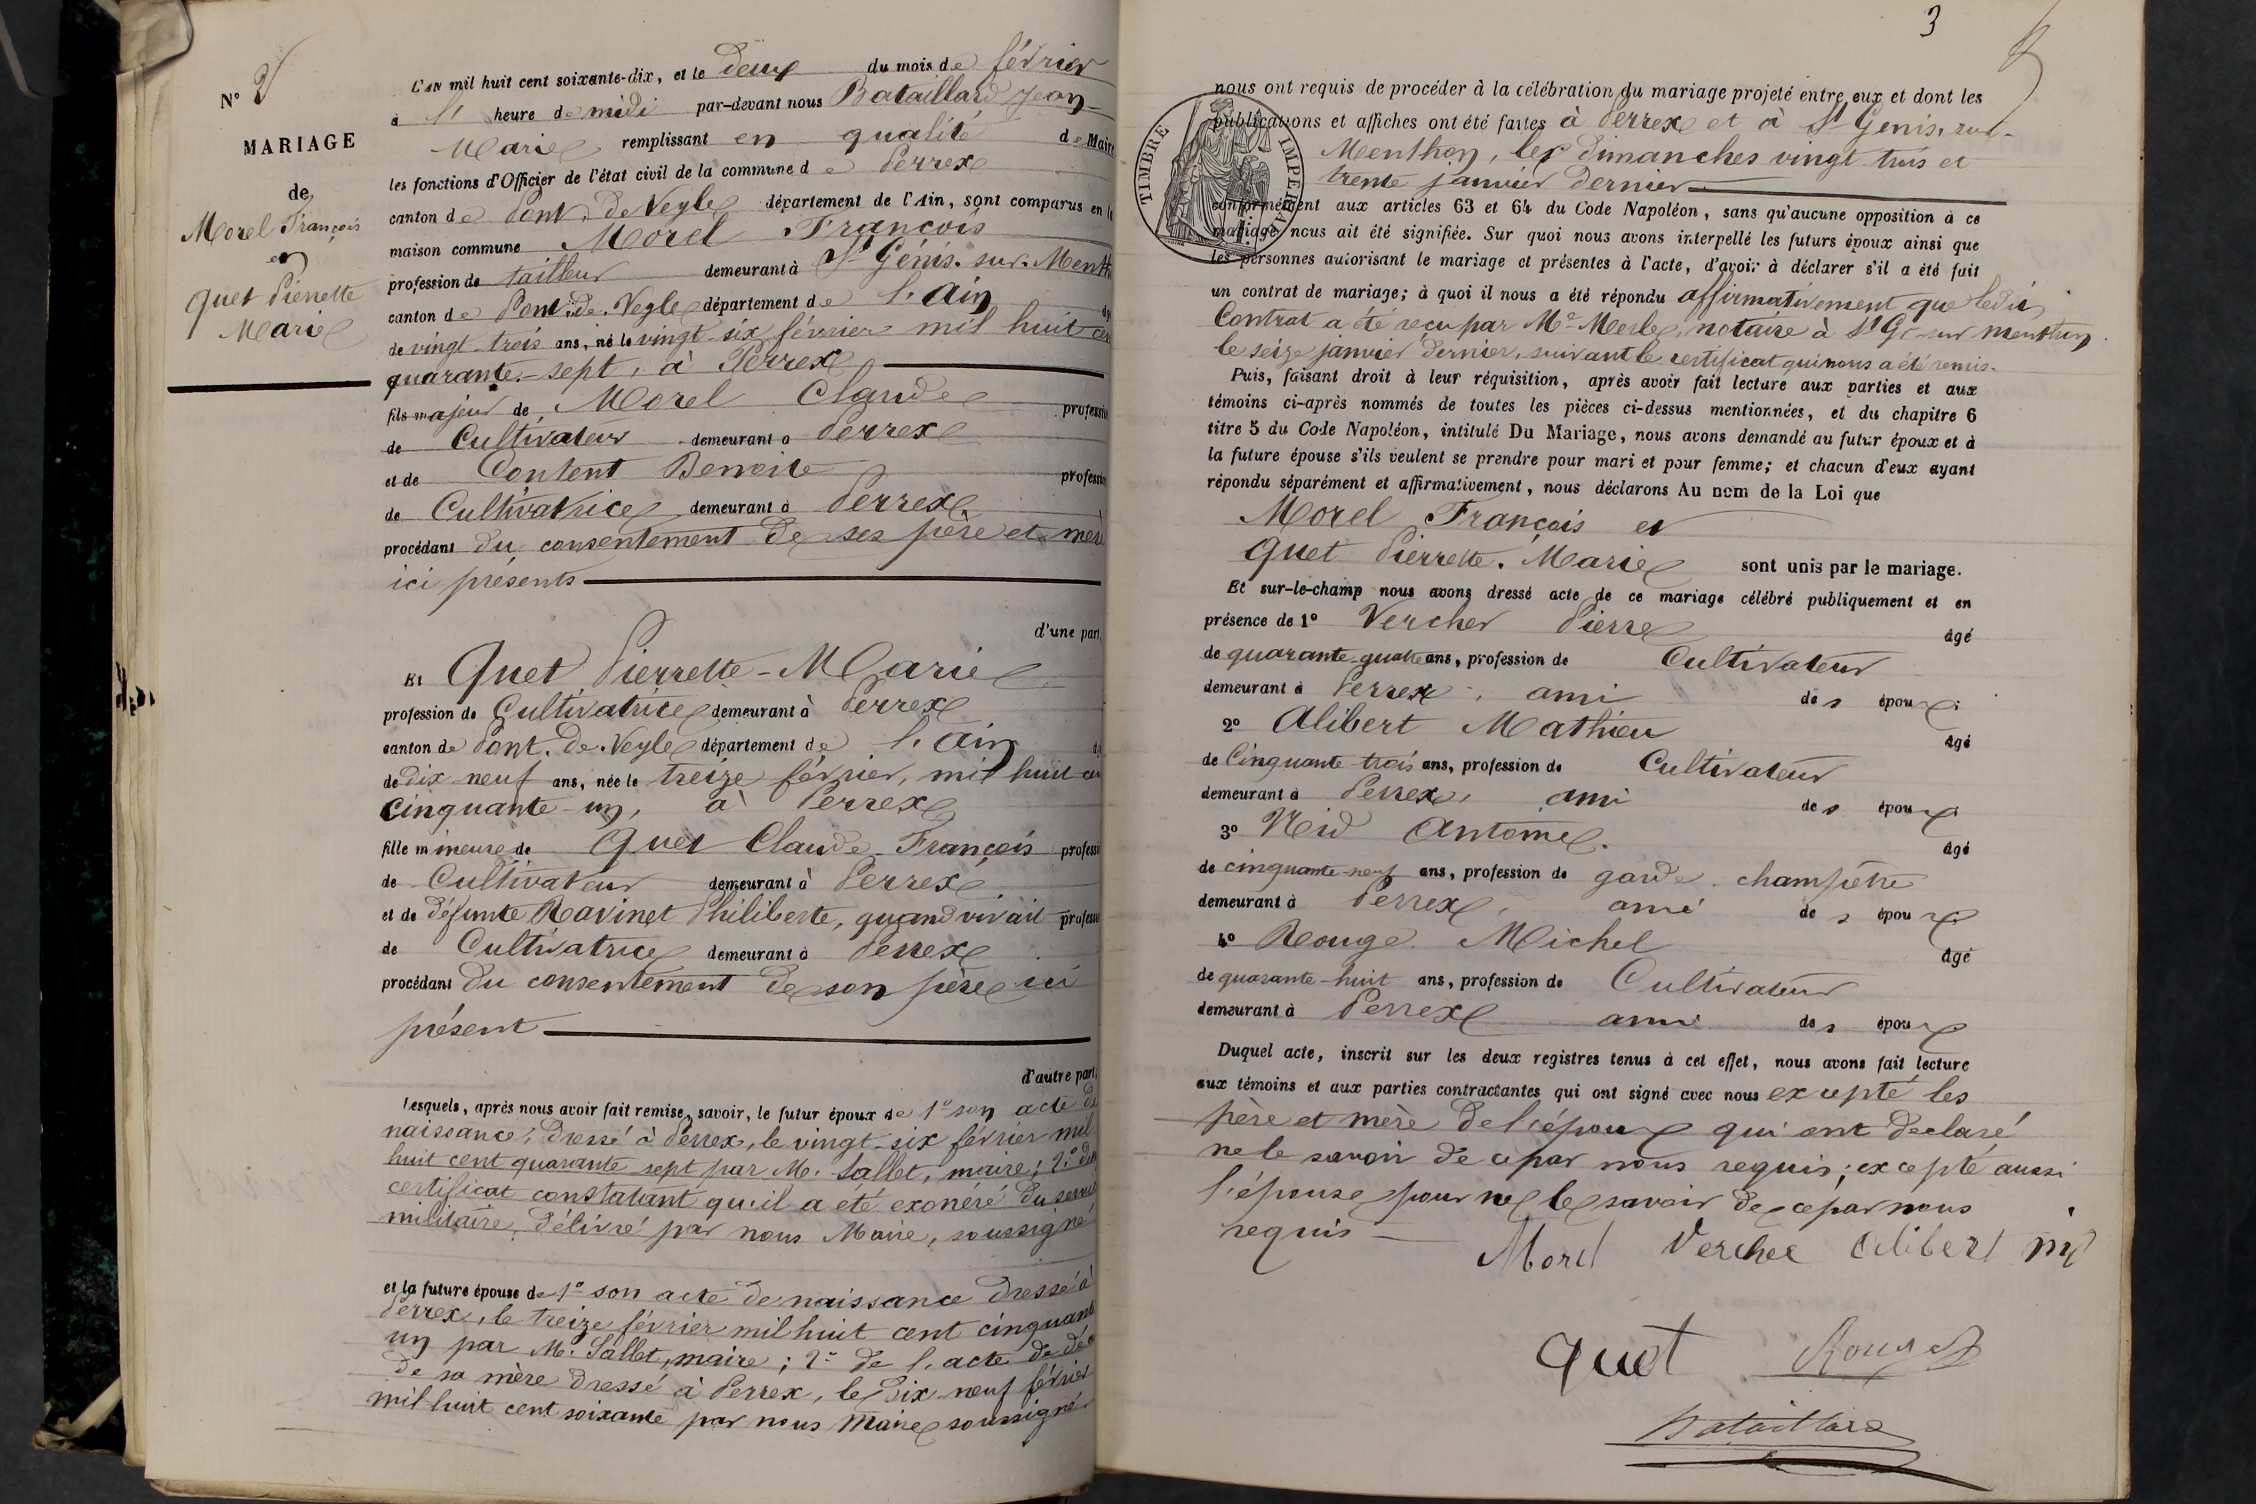 N° 2
MARIAGE
de
Morel François
et
Quet Pierrette
Marie
L'an mil huit cent soixante-dix, et le deux du mois de février
à l' heure de midi par-devant nous Bataillard Jean
Marie remplissant en qualité de Maire
les fonctions d'Officier de l'état civil de la commune de Perrex
canton de Pont de Veyle département de l'Ain, sont comparus en la
maison commune Morel François
profession de tailleur demeurant à St Génis-sur-Menth
canton de Pont-de-Veyle département de l'Ain
de vingt-trois ans, né le vingt-six février mil huit cen
quarante-sept, à Perrex
fils majeur de Morel Claude professio
de Cultivateur demeurant à Perrex
et de Content Benoite profession
de Cultivatrice demeurant à Perrex
procédant du consentement de ses père et mère
ici présents
d'une part,
Et Quet Pierrette-Marie
profession de Cultivatrice demeurant à Perrex
canton de Pont-de-Veyle département de l'Ain
de dix neuf ans, née le treize février, mil huit cen
cinquante-un, à Perrex
fille mineure de Quet Claude-François professi
de Cultivateur demeurant à Perrex
et de défunte Ravinet Philiberte, quand vivait profess
de Cultivatrice demeurant à Perrex
procédant du consentement de son père ici
présent
d'autre part;
Lesquels, après nous avoir fait remise, savoir, le futur époux de 1° son acte de
naissance, dressé à Perrex, le vingt-six février mil
huit cent quarante sept par M. Sallet, maire; 2° du
certificat constatant qu'il a été exonéré du service
militaire, délivré par nous Maire, soussigné
et la future épouse de 1° son acte de naissance dressé à
Perrex, le treize février mil huit cent cinquante
un par M. Sallet, maire; 2° de l'acte de déc
de sa mère dressé à Perrex, le dix neuf février
mil huit cent soixante par nous Maire soussigné
3
nous ont requis de procéder à la célébration du mariage projeté entre eux et dont les
publications et affiches ont été faites à Perrex et à St Genis-sur-
Menthon, les dimanches vingt trois et
trente janvier dernier
TIMBRE IMPERIAL
conformément aux articles 63 et 64 du Code Napoléon, sans qu'aucune opposition à ce
mariage nous ait été signifiée. Sur quoi nous avons interpellé les futurs époux ainsi que
les personnes autorisant le mariage et présentes à l'acte, d'avoir à déclarer s'il a été fait
un contrat de mariage; à quoi il nous a été répondu affirmativement que ledit
Contrat a été reçu par Me Merle, notaire à St G. sur menthon
le seize janvier dernier, suivant le certificat qui nous a été remis.
Puis, faisant droit à leur réquisition, après avoir fait lecture aux parties et aux
témoins ci-après nommés de toutes les pièces ci-dessus mentionnées, et du chapitre 6
titre 5 du Code Napoléon, intitulé Du Mariage, nous avons demandé au futur époux et à
la future épouse s'ils veulent se prendre pour mari et pour femme; et chacun d'eux ayant
répondu séparément et affirmativement, nous déclarons Au nom de la Loi que
Morel François et
Quet Pierrette-Marie sont unis par le mariage.
Et sur-le-champ nous avons dressé acte de ce mariage célébré publiquement et en
présence de 1° Vercher Pierre âgé
de quarante-quatre ans, profession de Cultivateur
demeurant à Perrex, ami des époux.
2° Alibert Mathieu âgé
de Cinquante-trois ans, profession de Cultivateur
demeurant à Perrex, ami des époux
3° Nid Antoine. âgé
de cinquante-neuf ans, profession de garde-champêtre
demeurant à Perrex, ami des époux
4° Rouge Michel âgé
de quarante-huit ans, profession de Cultivateur
demeurant à Perrex ami des époux
Duquel acte, inscrit sur les deux registres tenus à cet effet, nous avons fait lecture
aux témoins et aux parties contractantes qui ont signé avec nous excepté les
père et mère de l'époux qui ont déclaré
ne le savoir de ce par nous requis; excepté aussi
l'épouse pour ne le savoir de ce par nous
requis
Morel Vercher Alibert
Quet Rouge
Bataillard